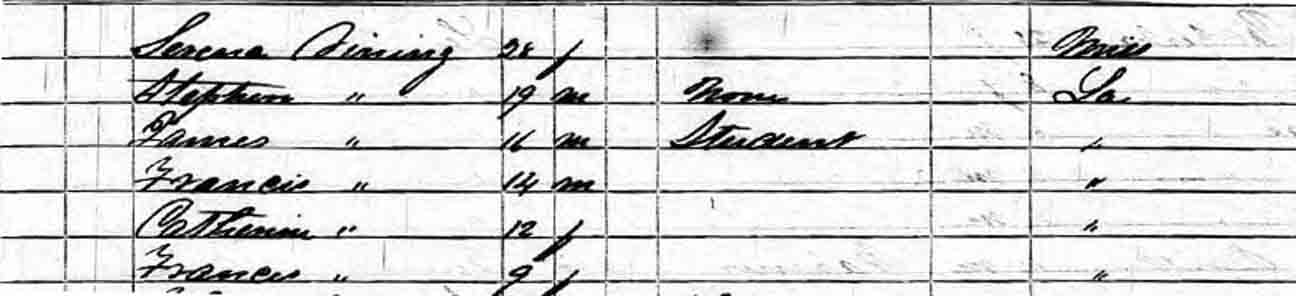 Serena Vining 28 f Miss
Stephen " 19 m None La
James " 16 m Student "
Francis " 14 m "
Catherine " 12 f "
Frances " 9 f "